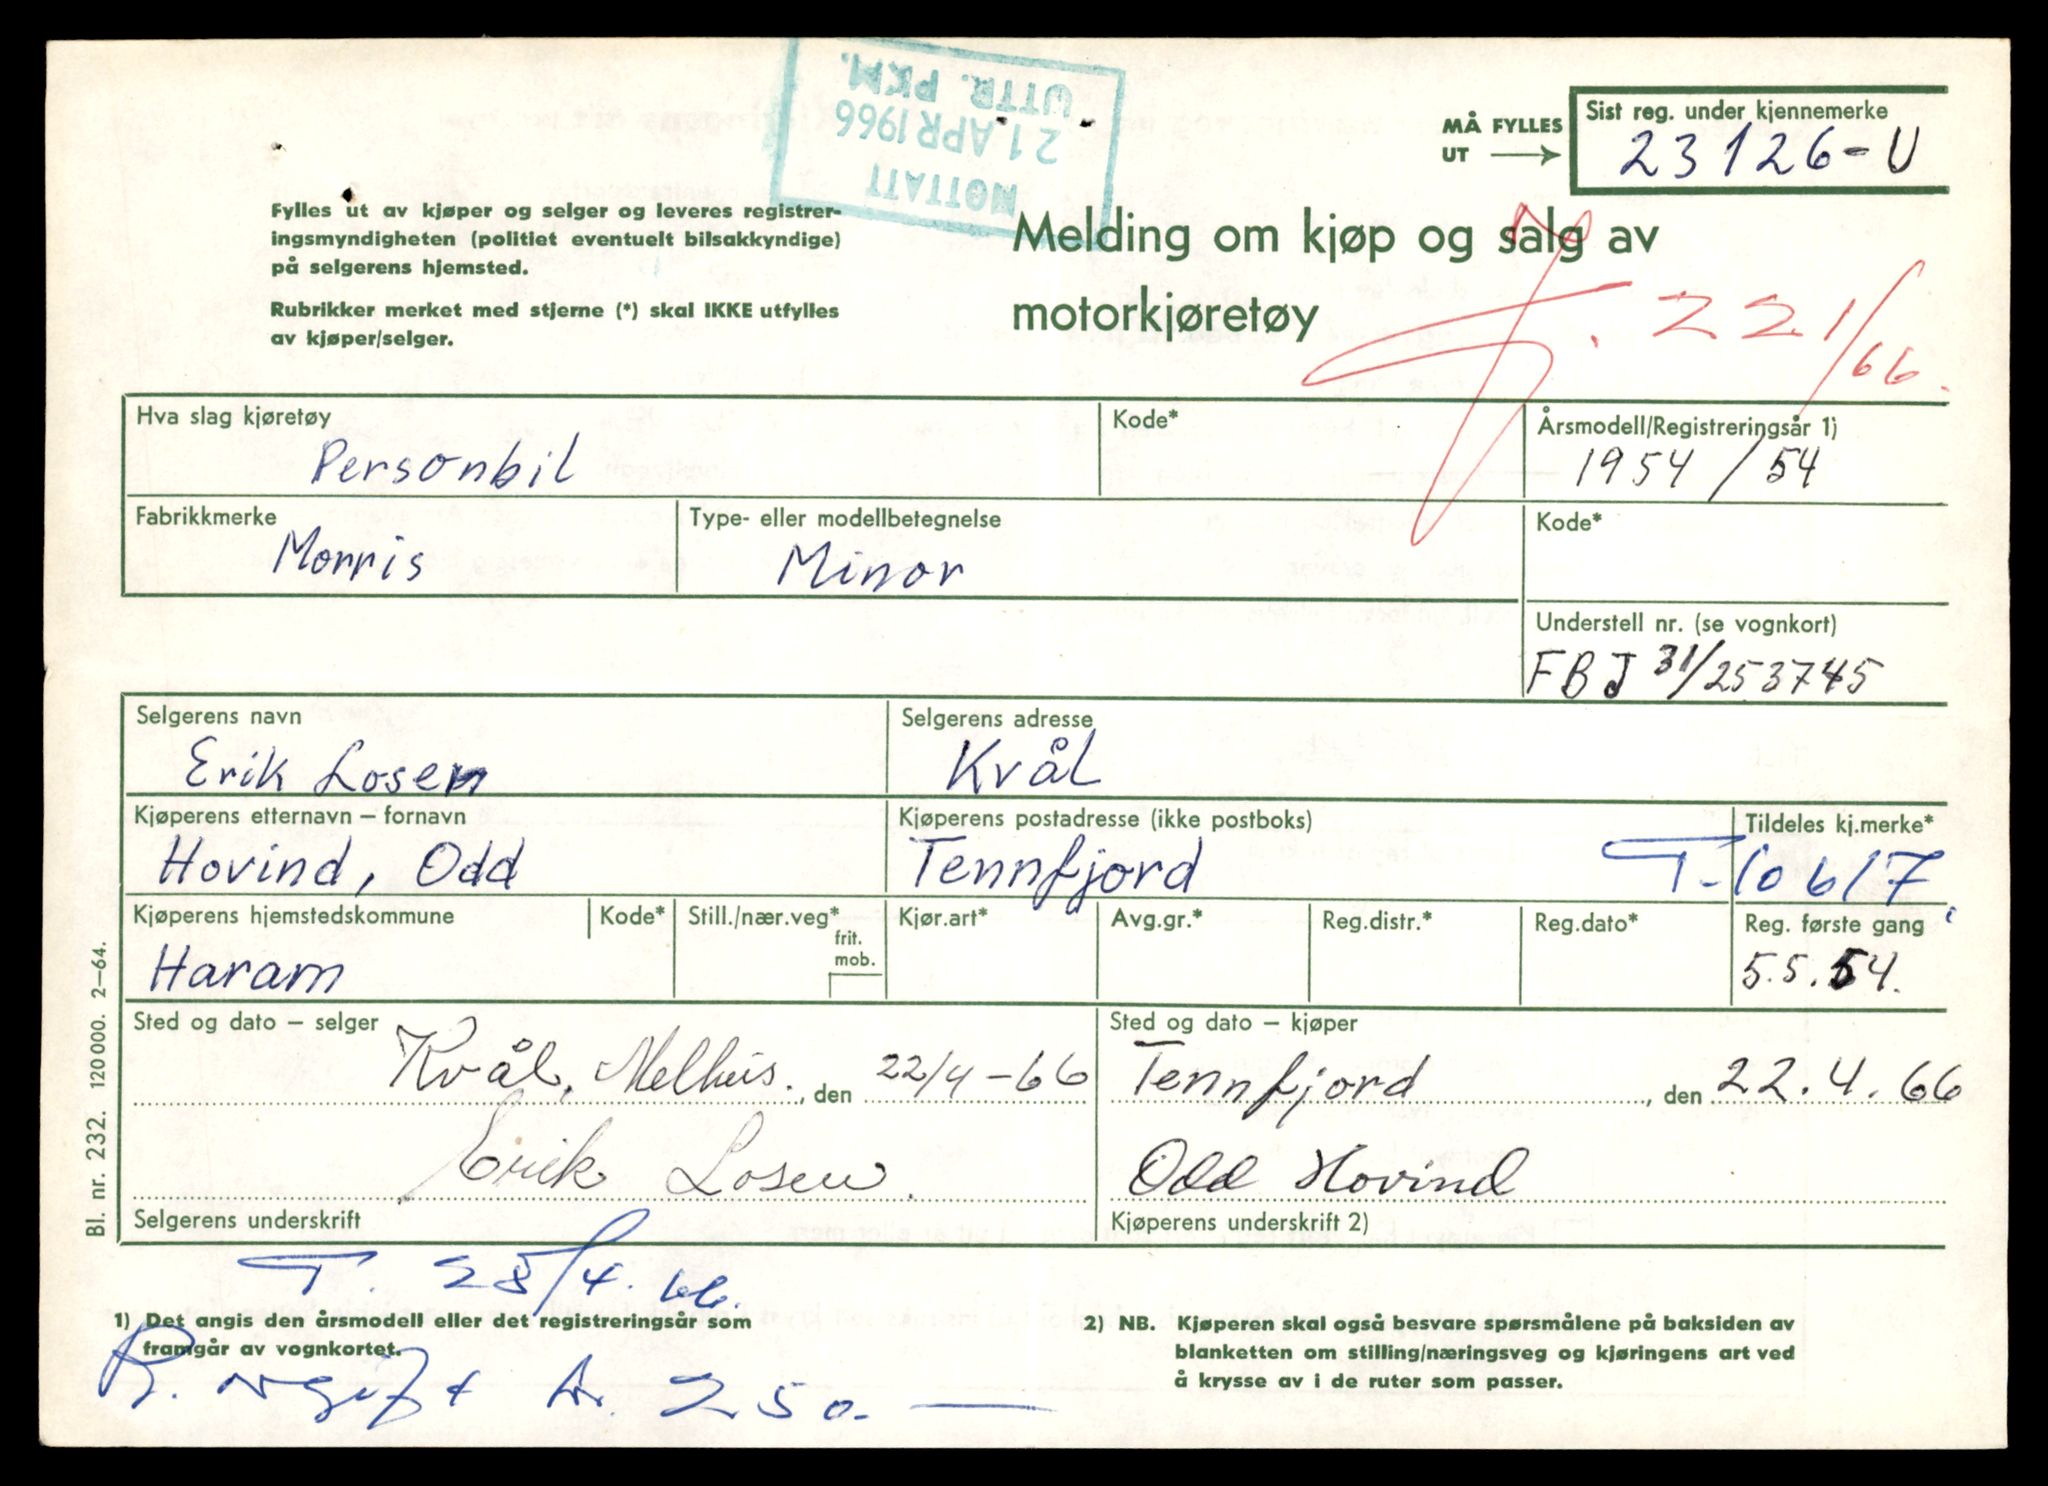 MOTTATT
21 APR 1966
UTTR. PKM.
MÅ FYLLES
UT
Sist reg. under kjennemerke
23126-U
Fylles ut av kjøper og selger og leveres registrer-
ingsmyndigheten (politiet eventuelt bilsakkyndige)
på selgerens hjemsted.
Rubrikker merket med stjerne (*) skal IKKE utfylles
av kjøper/selger.
Melding om kjøp og salg av
motorkjøretøy
221/66.
Hva slag kjøretøy
Personbil
Kode*
Årsmodell/Registreringsår 1)
1954/54
Fabrikkmerke
Morris
Type- eller modellbetegnelse
Minor
Kode*
Understell nr. (se vognkort)
FBJ 31/253745
Selgerens navn
Erik Losen
Selgerens adresse
Kvål
Kjøperens etternavn – fornavn
Hovind, Odd
Kjøperens postadresse (ikke postboks)
Tennfjord
Tildeles kj.merke*
T-10617.
Kjøperens hjemstedskommune
Haram
Kode*
Still./nær.veg*
frit.
mob.
Kjør.art*
Avg.gr.*
Reg.distr.*
Reg.dato*
Reg. første gang
5.5.54.
Sted og dato – selger
Kvål, Melhus., den 22/4-66
Erik Losen.
Selgerens underskrift
Sted og dato – kjøper
Tennfjord, den 22.4.66
Odd Hovind
Kjøperens underskrift 2)
T. 28/4.66.
1) Det angis den årsmodell eller det registreringsår som
framgår av vognkortet.
avgift kr. 250.—
2) NB. Kjøperen skal også besvare spørsmålene på baksiden av
blanketten om stilling/næringsveg og kjøringens art ved
å krysse av i de ruter som passer.
Bl. nr. 232. 120 000. 2–64.